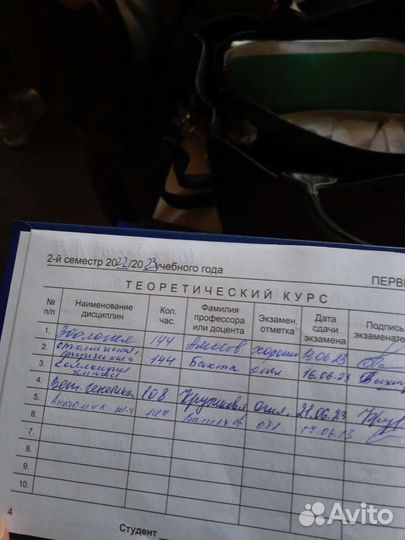 2-й семестр 2022/2023 учебного года
ПЕРВ
ТЕОРЕТИЧЕСКИЙ КУРС
№ п/п Наименование дисциплин Кол. час. Фамилия профессора или доцента Экзамен. отметка Дата сдачи экзамена Подпись экзаменате
1. Зоология 144 Амосов хорошо 13.06.23
2. органическая, 144 Бахта отл 16.06.23
3. химия
4. Вет. генетика 108 Отл. 21.06.23
5. Анатомия 144 отл.
6.
7.
8.
9.
10.
4
Студент
Avito